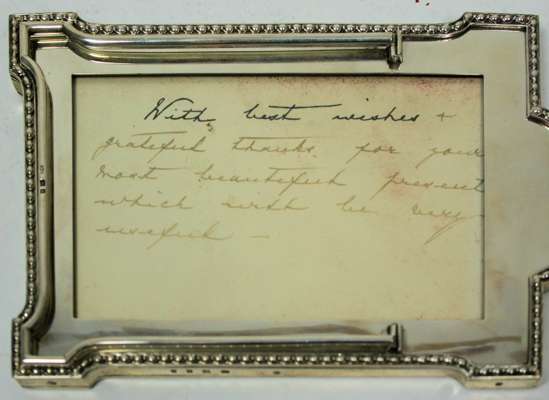 With best wishes +
grateful thanks for your
most beautiful present
which will be very
useful —